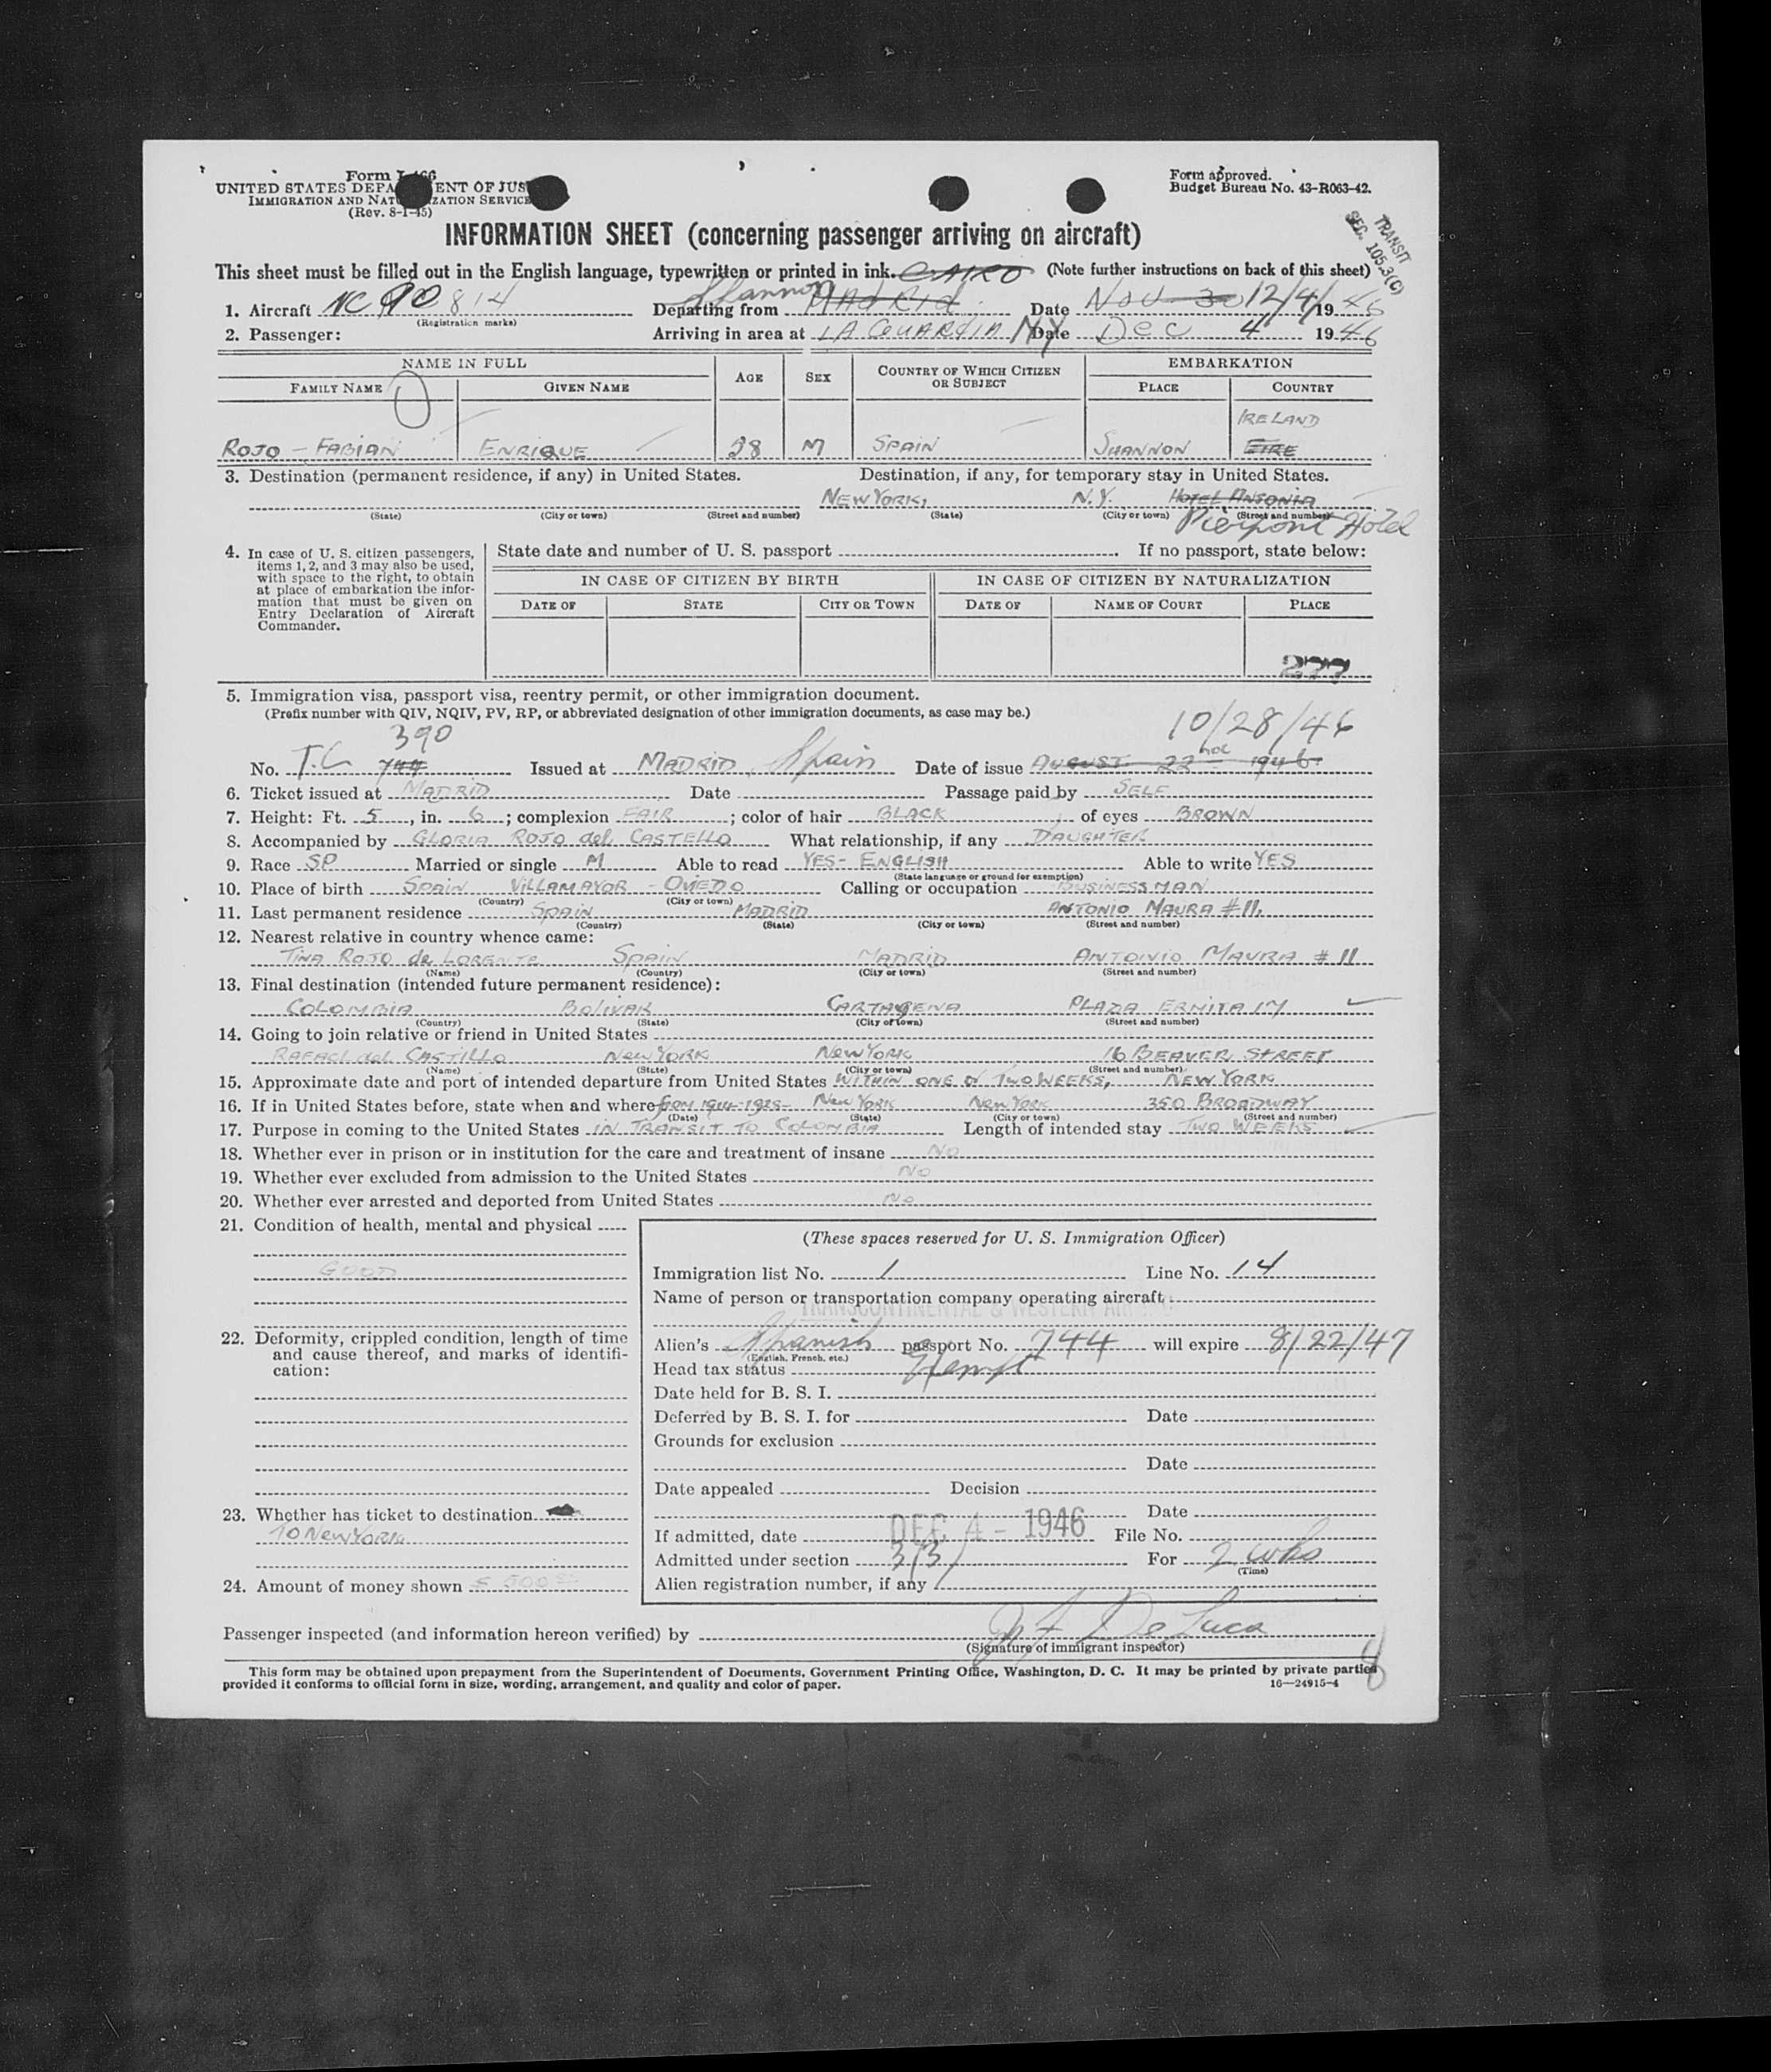 Form I-466
UNITED STATES DEPARTMENT OF JUSTICE
IMMIGRATION AND NATURALIZATION SERVICE
(Rev. 8-1-45)
Form approved.
Budget Bureau No. 43-R063-42.
TRANSIT
SEC. 105.3(C)
INFORMATION SHEET (concerning passenger arriving on aircraft)
This sheet must be filled out in the English language, typewritten or printed in ink. CAIRO (Note further instructions on back of this sheet)
1. Aircraft NC 90814 Departing from Shannon Madrid Date Nov 30 12/4/1946
(Registration marks)
2. Passenger: Arriving in area at LA GUARDIA NY Date Dec 4 1946
NAME IN FULL AGE SEX COUNTRY OF WHICH CITIZEN OR SUBJECT EMBARKATION
FAMILY NAME GIVEN NAME PLACE COUNTRY
IRELAND
ROJO - FABIAN ENRIQUE 28 M SPAIN SHANNON EIRE
3. Destination (permanent residence, if any) in United States. Destination, if any, for temporary stay in United States.
NEW YORK, N.Y. HOTEL ANSONIA
(State) (City or town) (Street and number) (State) (City or town) (Street and number)
Pierpont Hotel
4. In case of U. S. citizen passengers, items 1, 2, and 3 may also be used, with space to the right, to obtain at place of embarkation the information that must be given on Entry Declaration of Aircraft Commander.
State date and number of U. S. passport If no passport, state below:
IN CASE OF CITIZEN BY BIRTH IN CASE OF CITIZEN BY NATURALIZATION
DATE OF STATE CITY OR TOWN DATE OF NAME OF COURT PLACE
277
5. Immigration visa, passport visa, reentry permit, or other immigration document.
(Prefix number with QIV, NQIV, PV, RP, or abbreviated designation of other immigration documents, as case may be.)
390 10/28/46
No. T.C 744 Issued at MADRID, Spain Date of issue AUGUST 22 1946
6. Ticket issued at MADRID Date Passage paid by SELF
7. Height: Ft. 5, in. 6; complexion FAIR; color of hair BLACK; of eyes BROWN
8. Accompanied by GLORIA ROJO del CASTELLO What relationship, if any DAUGHTER
9. Race SP Married or single M Able to read YES- ENGLISH Able to write YES
(State language or ground for exemption)
10. Place of birth SPAIN VILLAMAYOR - OVIEDO Calling or occupation BUSINESSMAN
(Country) (City or town)
11. Last permanent residence SPAIN MADRID ANTONIO MAURA #11.
(Country) (State) (City or town) (Street and number)
12. Nearest relative in country whence came:
TINA ROJO de LORENTE SPAIN MADRID ANTONIO MAURA #11
(Name) (Country) (City or town) (Street and number)
13. Final destination (intended future permanent residence):
COLOMBIA BOLIVAR CARTAGENA PLADA ERMITA 17
(Country) (State) (City or town) (Street and number)
14. Going to join relative or friend in United States
RAFAEL del CASTILLO NEW YORK NEW YORK 16 BEAVER STREET
(Name) (State) (City or town) (Street and number)
15. Approximate date and port of intended departure from United States WITHIN ONE or TWO WEEKS, NEW YORK
16. If in United States before, state when and where from 1944-1925- New York New York 350 BROADWAY
(Date) (State) (City or town) (Street and number)
17. Purpose in coming to the United States IN TRANSIT TO COLOMBIA Length of intended stay TWO WEEKS
18. Whether ever in prison or in institution for the care and treatment of insane NO
19. Whether ever excluded from admission to the United States NO
20. Whether ever arrested and deported from United States NO
21. Condition of health, mental and physical
GOOD
22. Deformity, crippled condition, length of time and cause thereof, and marks of identification:
23. Whether has ticket to destination
TO NEW YORK
24. Amount of money shown $ 500
(These spaces reserved for U. S. Immigration Officer)
Immigration list No. 1 Line No. 14
Name of person or transportation company operating aircraft
TRANSCONTINENTAL & WESTERN AIR
Alien's Spanish passport No. 744 will expire 8/22/47
(English, French, etc.)
Head tax status Exempt
Date held for B. S. I.
Deferred by B. S. I. for Date
Grounds for exclusion
Date
Date appealed Decision
Date
If admitted, date DEC 4 - 1946 File No.
Admitted under section 3(3) For 2 wks
(Time)
Alien registration number, if any
Passenger inspected (and information hereon verified) by De Luca
(Signature of immigrant inspector)
This form may be obtained upon prepayment from the Superintendent of Documents, Government Printing Office, Washington, D. C. It may be printed by private parties
provided it conforms to official form in size, wording, arrangement, and quality and color of paper. 16—24915-4